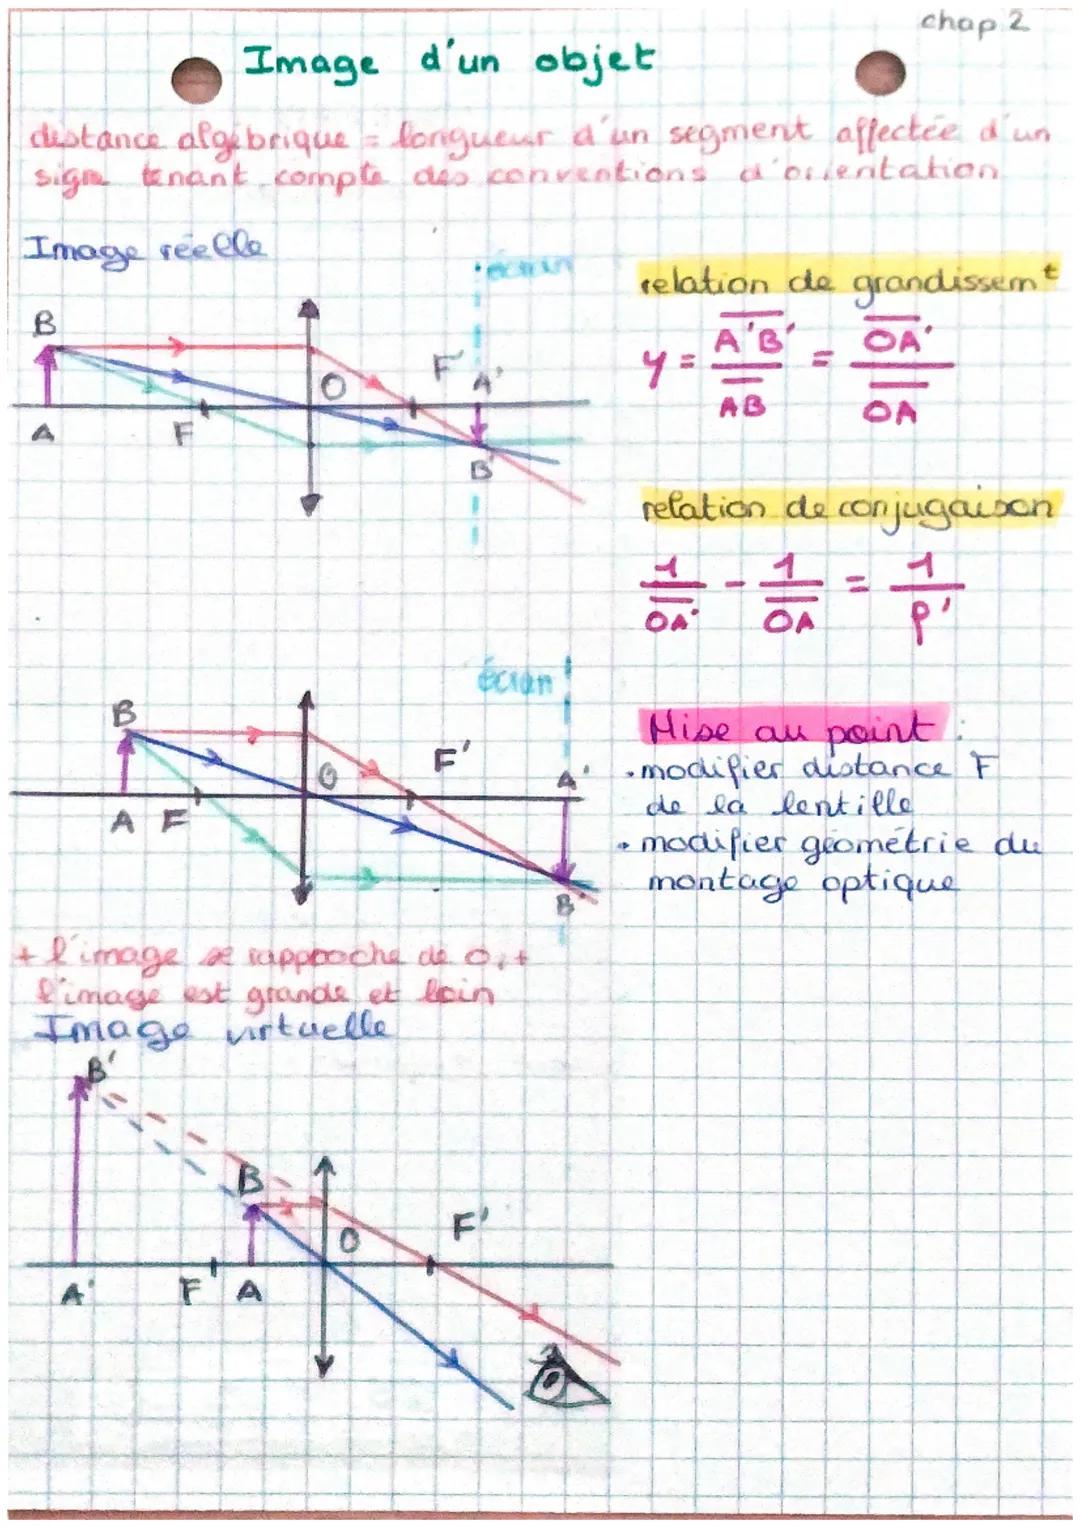 chap 2
Image d'un objet
distance algébrique = longueur d'un segment affectée d'un
signe tenant compte des conventions d'orientation
Image réelle
écran
B
O
F'
A'
A
F
B'
relation de grandissem^t
γ = A'B' / AB = OA' / OA
relation de conjugaison
1/OA' - 1/OA = 1/f'
écran
B
O
F'
A'
A F
B'
Mise au point :
• modifier distance F
de la lentille
• modifier géométrie du
montage optique
+ l'image se rapproche de O, +
l'image est grande et loin
Image virtuelle
B'
B
O
F'
A'
F
A